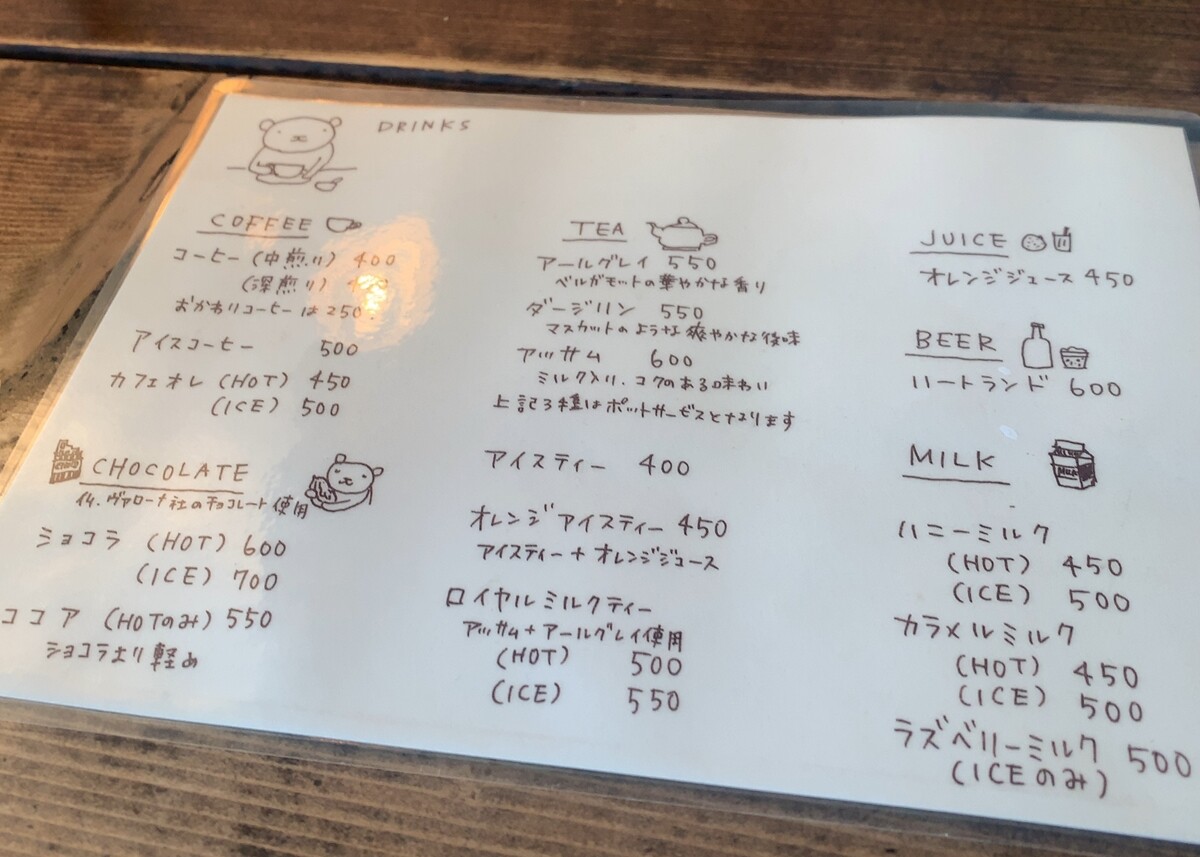 DRINKS
COFFEE
コーヒー(中煎り) 400
(深煎り)
おかわりコーヒーは250.
アイスコーヒー 500
カフェオレ(HOT) 450
(ICE) 500
CHOCOLATE
イム.ヴァローナ社のチョコレート使用
ショコラ (HOT) 600
(ICE) 700
ココア (HOTのみ) 550
ショコラより軽め
TEA
アールグレイ 550
ベルガモットの華やかな香り
ダージリン 550
マスカットのような爽やかな後味
アッサム 600
ミルク入り.コクのある味わい
上記3種はポットサービスとなります
アイスティー 400
オレンジアイスティー 450
アイスティー+オレンジジュース
ロイヤルミルクティー
アッサム+アールグレイ使用
(HOT) 500
(ICE) 550
JUICE
オレンジジュース 450
BEER
ハートランド 600
MILK
ハニーミルク
(HOT) 450
(ICE) 500
カラメルミルク
(HOT) 450
(ICE) 500
ラズベリーミルク 500
(ICEのみ)